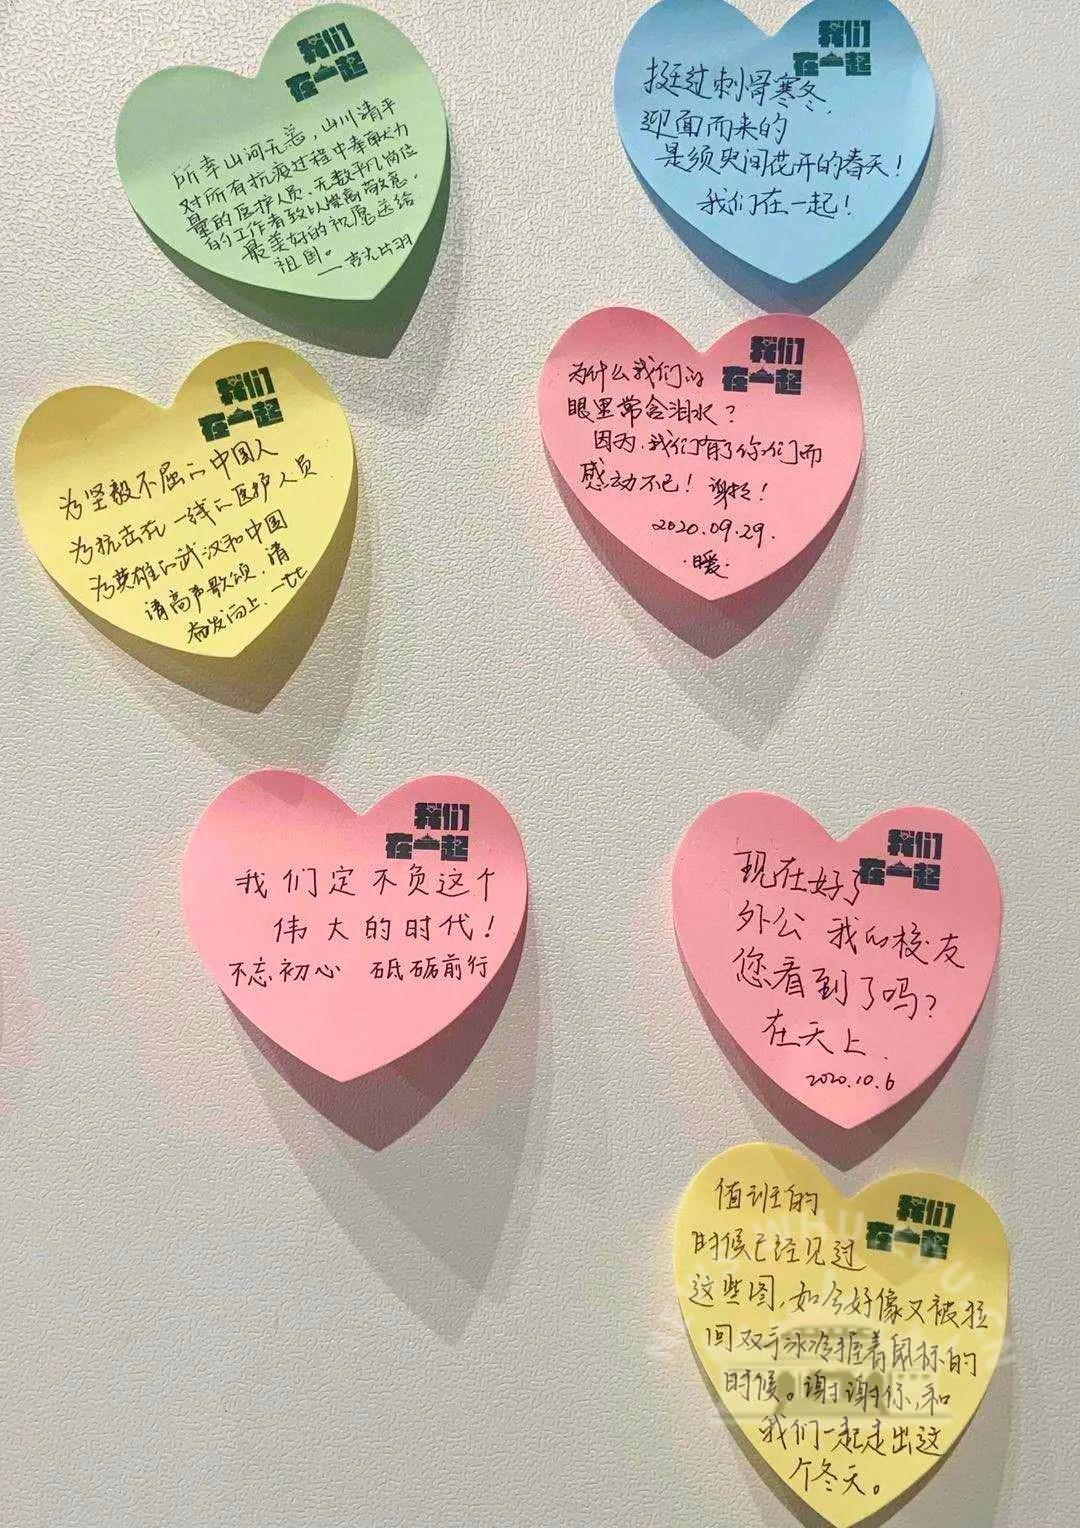 我们
在一起
所幸山河无恙，山川清平
对所有抗疫过程中奉献力
量的医护人员、无数平凡岗位
的工作者致以崇高敬意，
最美好的祝愿送给
祖国。
我们
在一起
挺过刺骨寒冬，
迎面而来的
是须臾间花开的春天！
我们在一起！
我们
在一起
为坚毅不屈的中国人
为抗击在一线的医护人员
为英雄的武汉和中国
请高声歌颂，请
奋发向上.
我们
在一起
为什么我们的
眼里常含泪水？
因为，我们有了你们而
感动不已！谢谢！
2020.09.29.
·暖·
我们
在一起
我们定不负这个
伟大的时代！
不忘初心 砥砺前行
我们
在一起
现在好了
外公 我的校友
您看到了吗？
在天上.
2020.10.6
我们
在一起
值班的
时候已经见过
这些图，如今好像又被拉
回双手冰冷握着鼠标的
时候。谢谢你，和
我们一起走出这
个冬天。